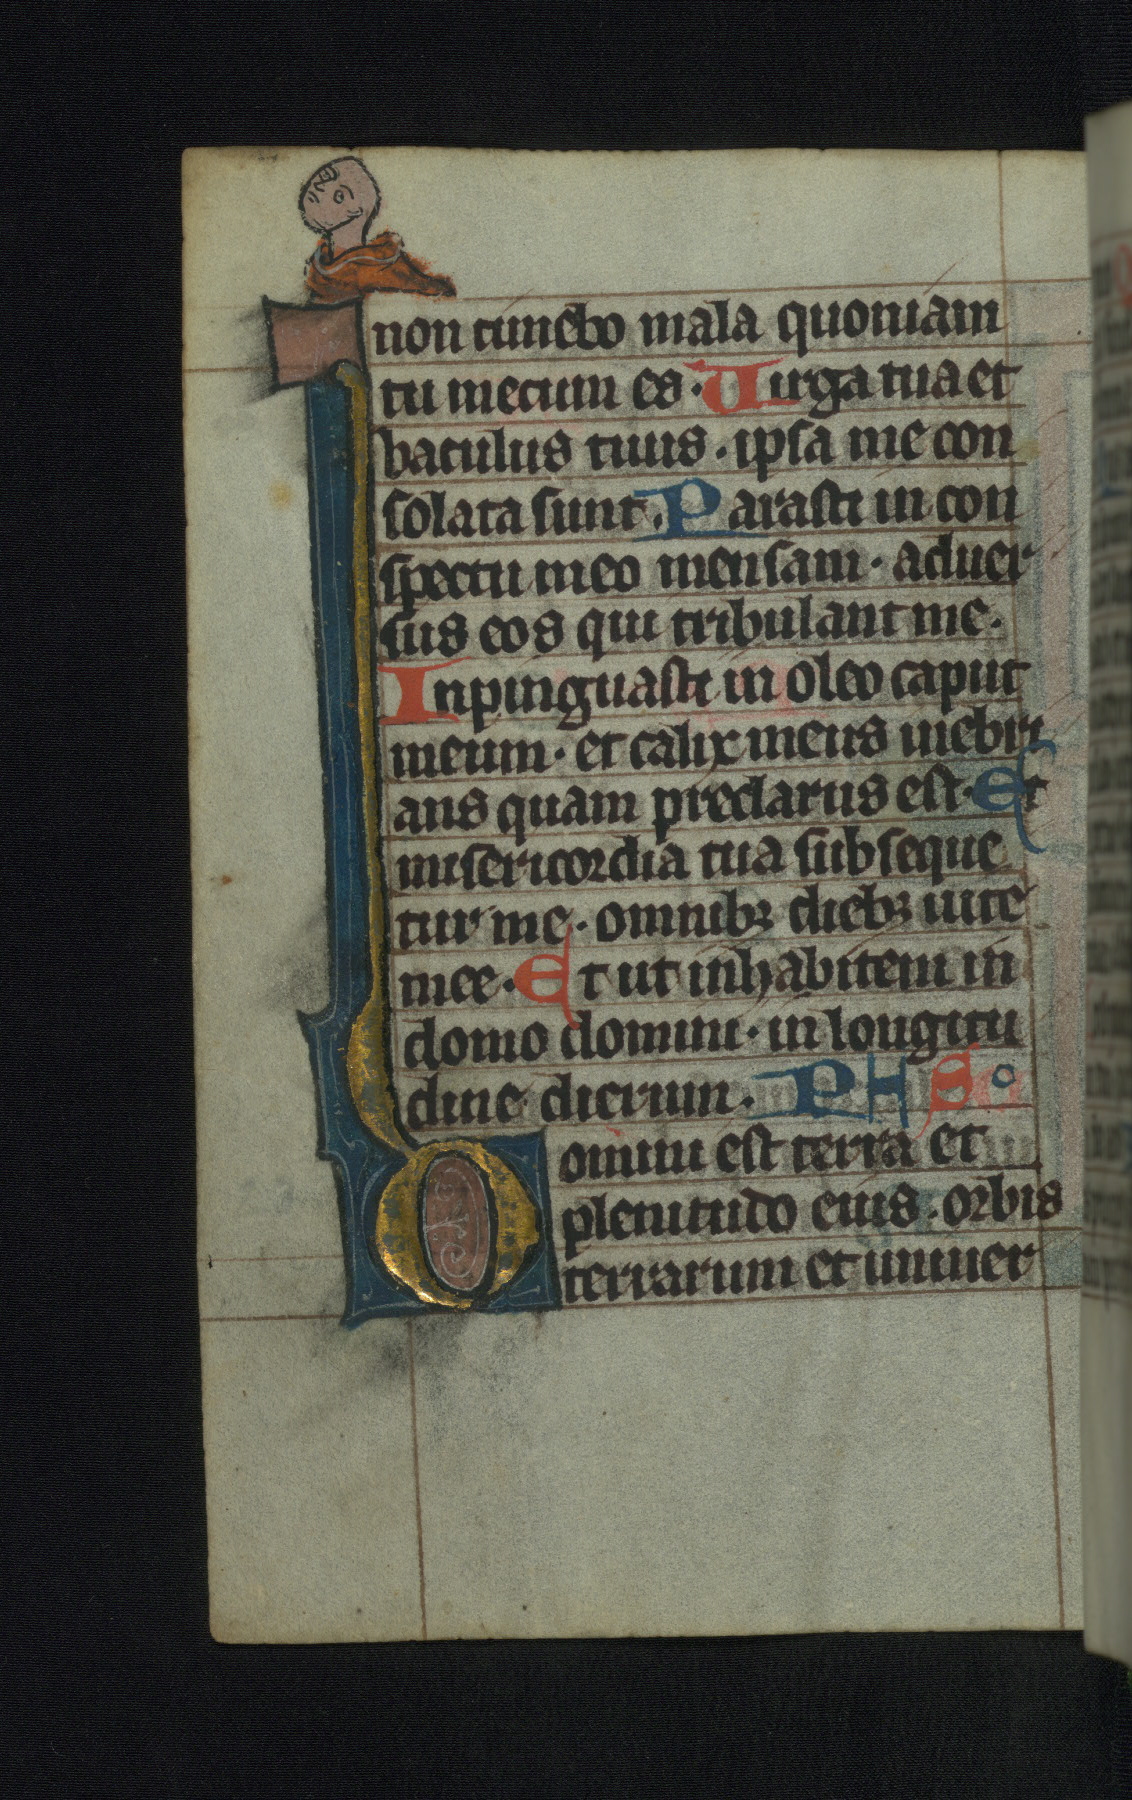 non timebo mala quoniam
tu mecum es. Uirga tua et
baculus tuus. ipsa me con
solata sunt. Parasti in con
spectu meo mensam. aduer
sus eos qui tribulant me.
Inpinguasti in oleo caput
meum. et calix meus inebri
ans quam preclarus est. Et
misericordia tua subseque
tur me. omnibꝫ diebꝫ uite
mee. Et ut inhabitem in
domo domini. in longitu
dine dierum. PHS
Domini est terra et
plenitudo eius. orbis
terrarum et uniuer